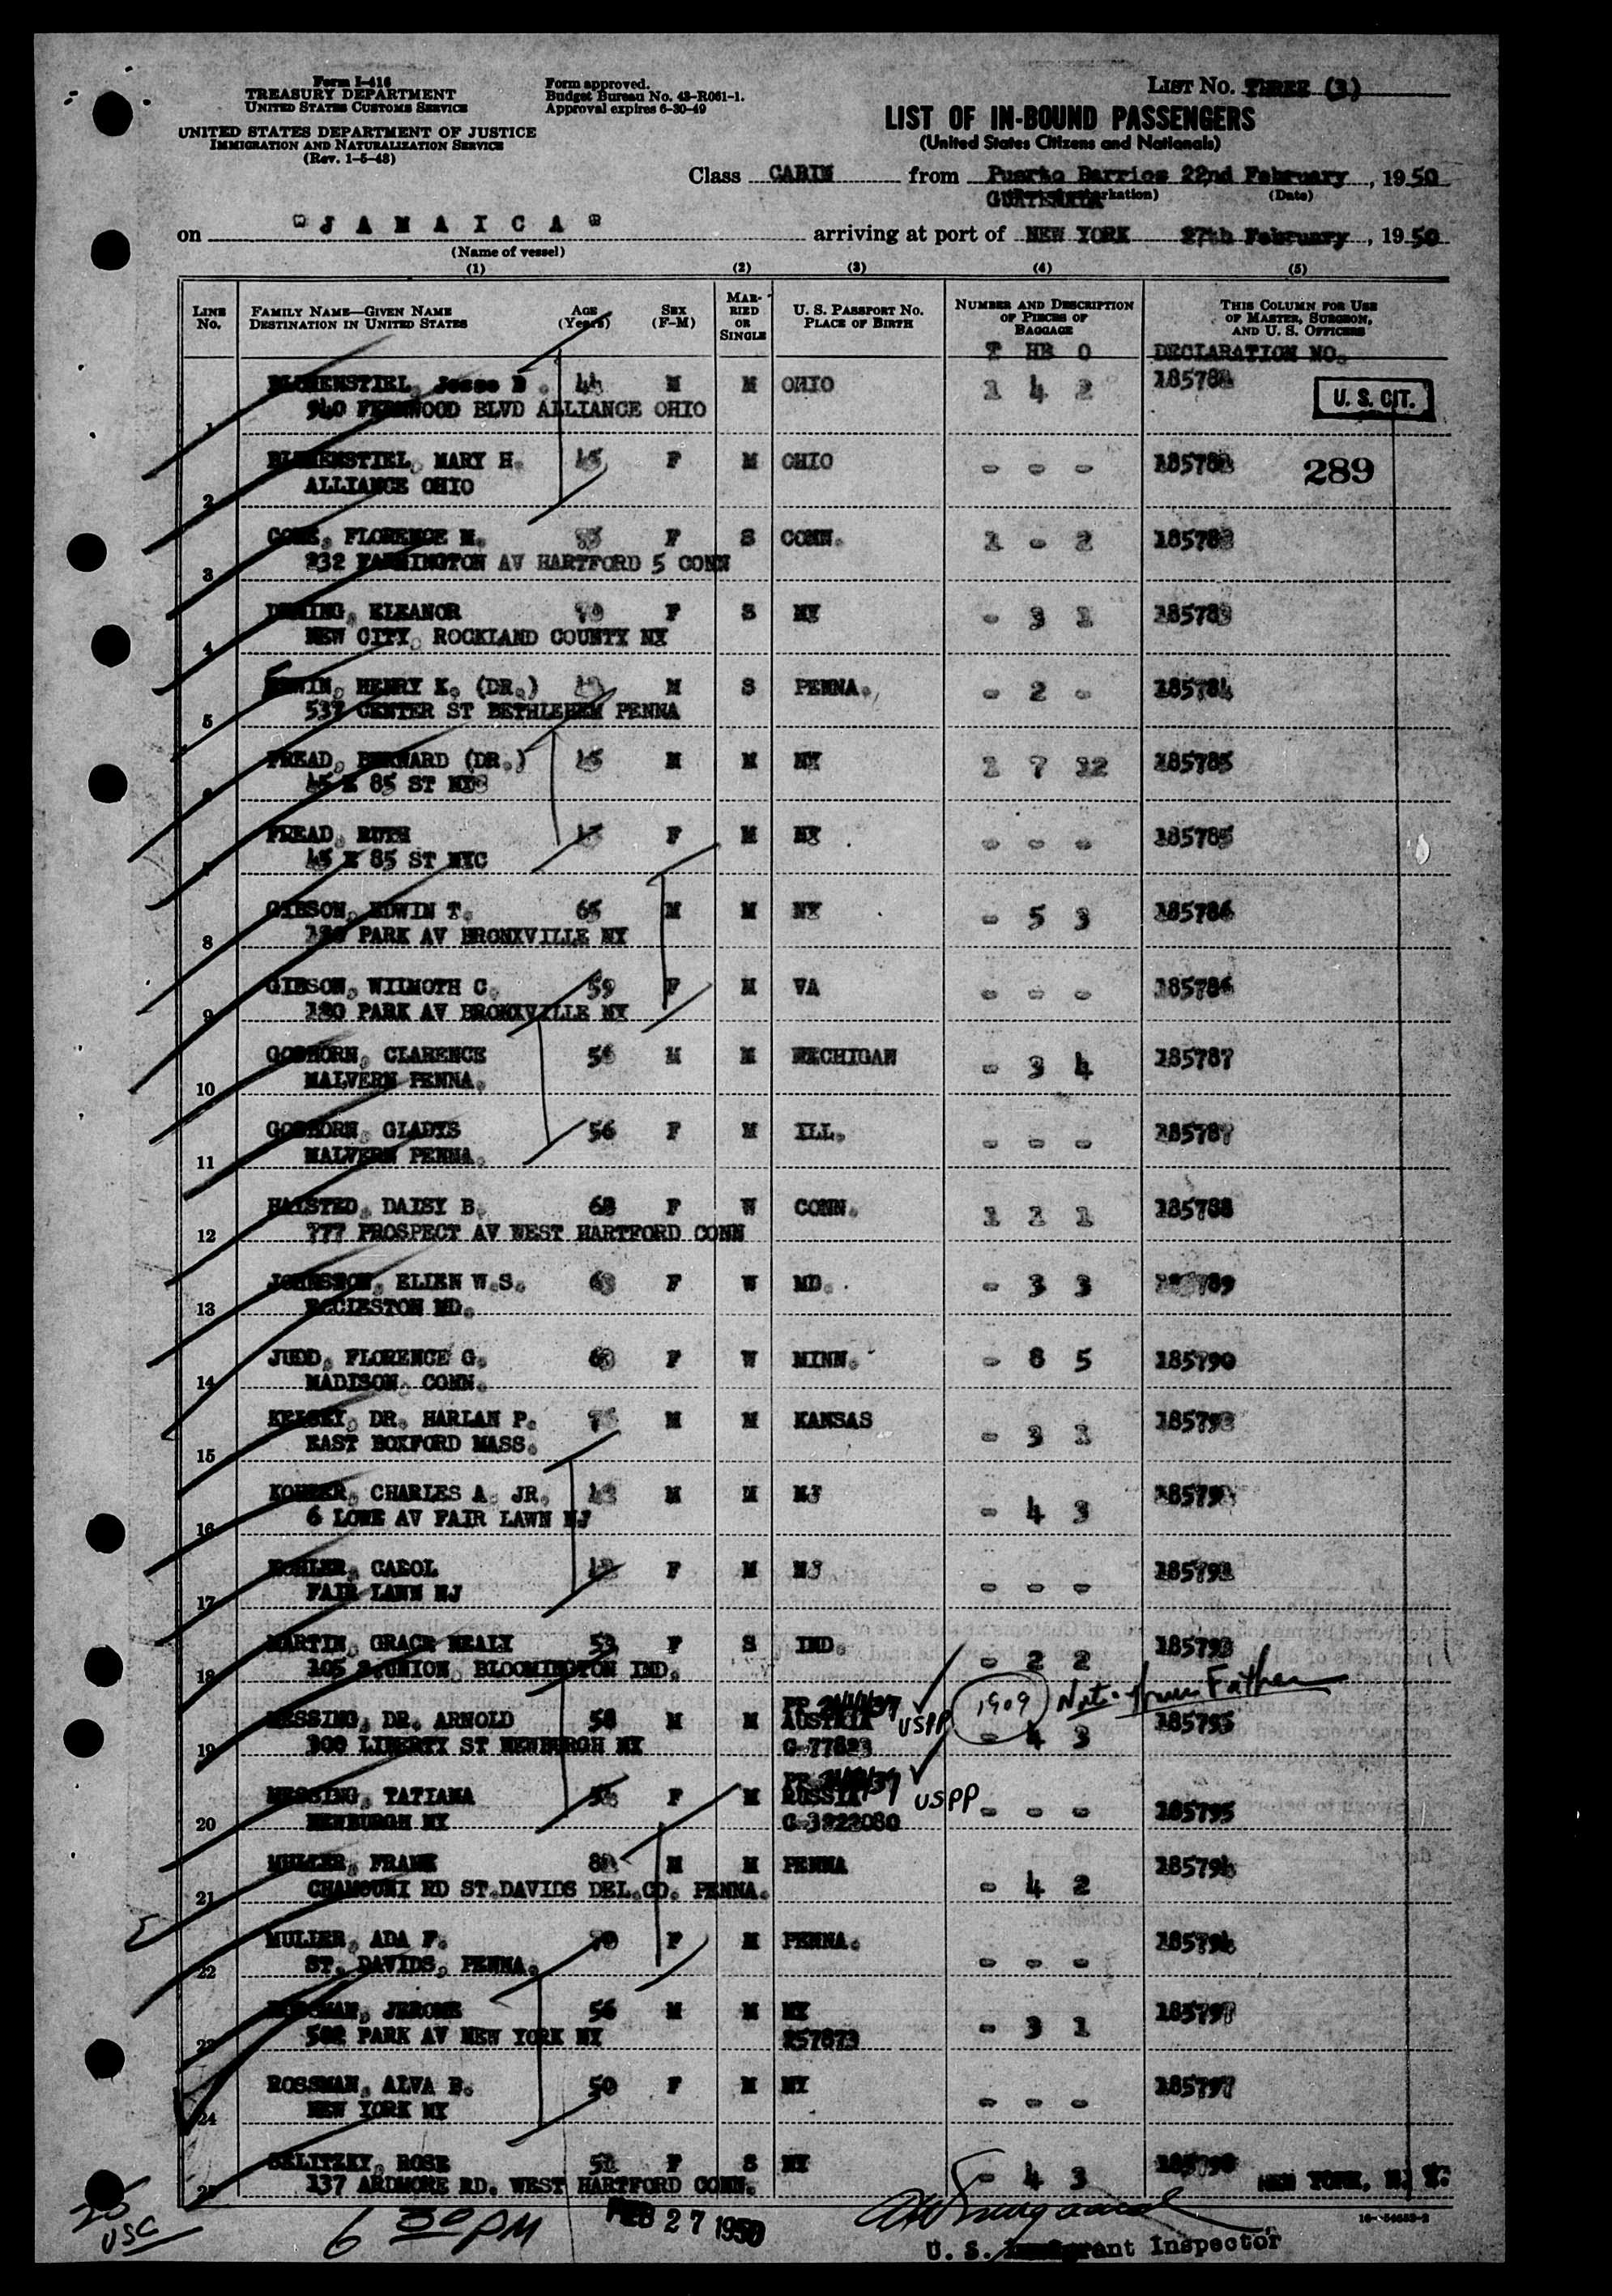 Form I-416
TREASURY DEPARTMENT
UNITED STATES CUSTOMS SERVICE
UNITED STATES DEPARTMENT OF JUSTICE
IMMIGRATION AND NATURALIZATION SERVICE
(Rev. 1-5-48)
Form approved.
Budget Bureau No. 43-R061-1.
Approval expires 6-30-49
LIST No. THREE (3)
LIST OF IN-BOUND PASSENGERS
(United States Citizens and Nationals)
Class CABIN from Puerto Barrios 22nd February, 1950
GUATEMALA (Date)
on "JAMAICA" arriving at port of NEW YORK 27th February, 1950
(Name of vessel)
(1) (2) (3) (4) (5)
LINE No. FAMILY NAME—GIVEN NAME DESTINATION IN UNITED STATES AGE (Years) SEX (F-M) MARRIED OR SINGLE U. S. PASSPORT No. PLACE OF BIRTH NUMBER AND DESCRIPTION OF PIECES OF BAGGAGE THIS COLUMN FOR USE OF MASTER, SURGEON, AND U. S. OFFICERS
T HB O DECLARATION NO.
BLUMENSTIEL, Jesse D. 44 M M OHIO 1 4 2 U. S. CIT.
1 940 FERNWOOD BLVD ALLIANCE OHIO
BLUMENSTIEL, MARY H. 45 F M OHIO - - - 289
2 ALLIANCE OHIO
FLORENCE M. F S CONN. 1 - 2
3 232 FARMINGTON AV HARTFORD 5 CONN
ELEANOR F S NY - 3 1 185783
4 NEW CITY, ROCKLAND COUNTY NY
HENRY K. (DR.) M S PENNA. - 2 - 185784
5 537 CENTER ST BETHLEHEM PENNA
FREAD, BERNARD (DR.) 45 M M NY 1 7 12 185785
45 E 85 ST NYC
FREAD, RUTH F M NY - - - 185785
45 E 85 ST NYC
GIBSON, EDWIN T. 65 M M NY - 5 3 185786
8 180 PARK AV BRONXVILLE NY
GIBSON, WILMOTH C. 59 F M VA - - - 185786
9 180 PARK AV BRONXVILLE NY
GOSHORN, CLARENCE 56 M M MICHIGAN - 3 4 185787
10 MALVERN PENNA.
GOSHORN, GLADYS 56 F M ILL. - - - 185787
11 MALVERN PENNA.
HALSTED, DAISY B. 68 F W CONN. 1 1 1 185788
12 777 PROSPECT AV WEST HARTFORD CONN
JOHNSTON, ELLEN W.S. F W MD. - 3 3 185789
13 ECCLESTON MD.
JUDD, FLORENCE G. F W MINN. - 8 5 185790
14 MADISON CONN.
KELSEY, DR. HARLAN P. M M KANSAS - 3
15 EAST BOXFORD MASS.
KOHLER, CHARLES A. JR. M M NJ - 4 3
16 6 LOWE AV FAIR LAWN NJ
KOHLER, CAROL F M NJ - - -
17 FAIR LAWN NJ
MARTIN, GRACE NEALY 53 F S IND. - 2 2 185793
18 105 S.UNION, BLOOMINGTON IND.
MESSING, DR. ARNOLD 58 M M PP AUSTRIA USPP 1909 Nat. from Father - 4 3 185795
19 300 LIBERTY ST NEWBURGH NY G-77823
MESSING, TATIANA F M PP RUSSIA USPP - - - 185795
20 NEWBURGH NY G-3922080
MULLER, FRANK M M PENNA - 4 2 185796
21 CHAMOUNI RD ST.DAVIDS DEL.CO. PENNA.
MULLER, ADA F. 70 F M PENNA. - - - 185796
22 ST. DAVIDS, PENNA.
ROSSMAN, JEROME 56 M M NY - 3 1 185797
23 502 PARK AV NEW YORK NY 257873
ROSSMAN, ALVA B. 50 F M NY - - - 185797
24 NEW YORK NY
SELITZKY, ROSE F S NY - 4 3 NEW YORK, N. Y.
25 137 ARDMORE RD. WEST HARTFORD CONN.
25 USC
6 30 PM
FEB 27 1950
U. S. Inspector